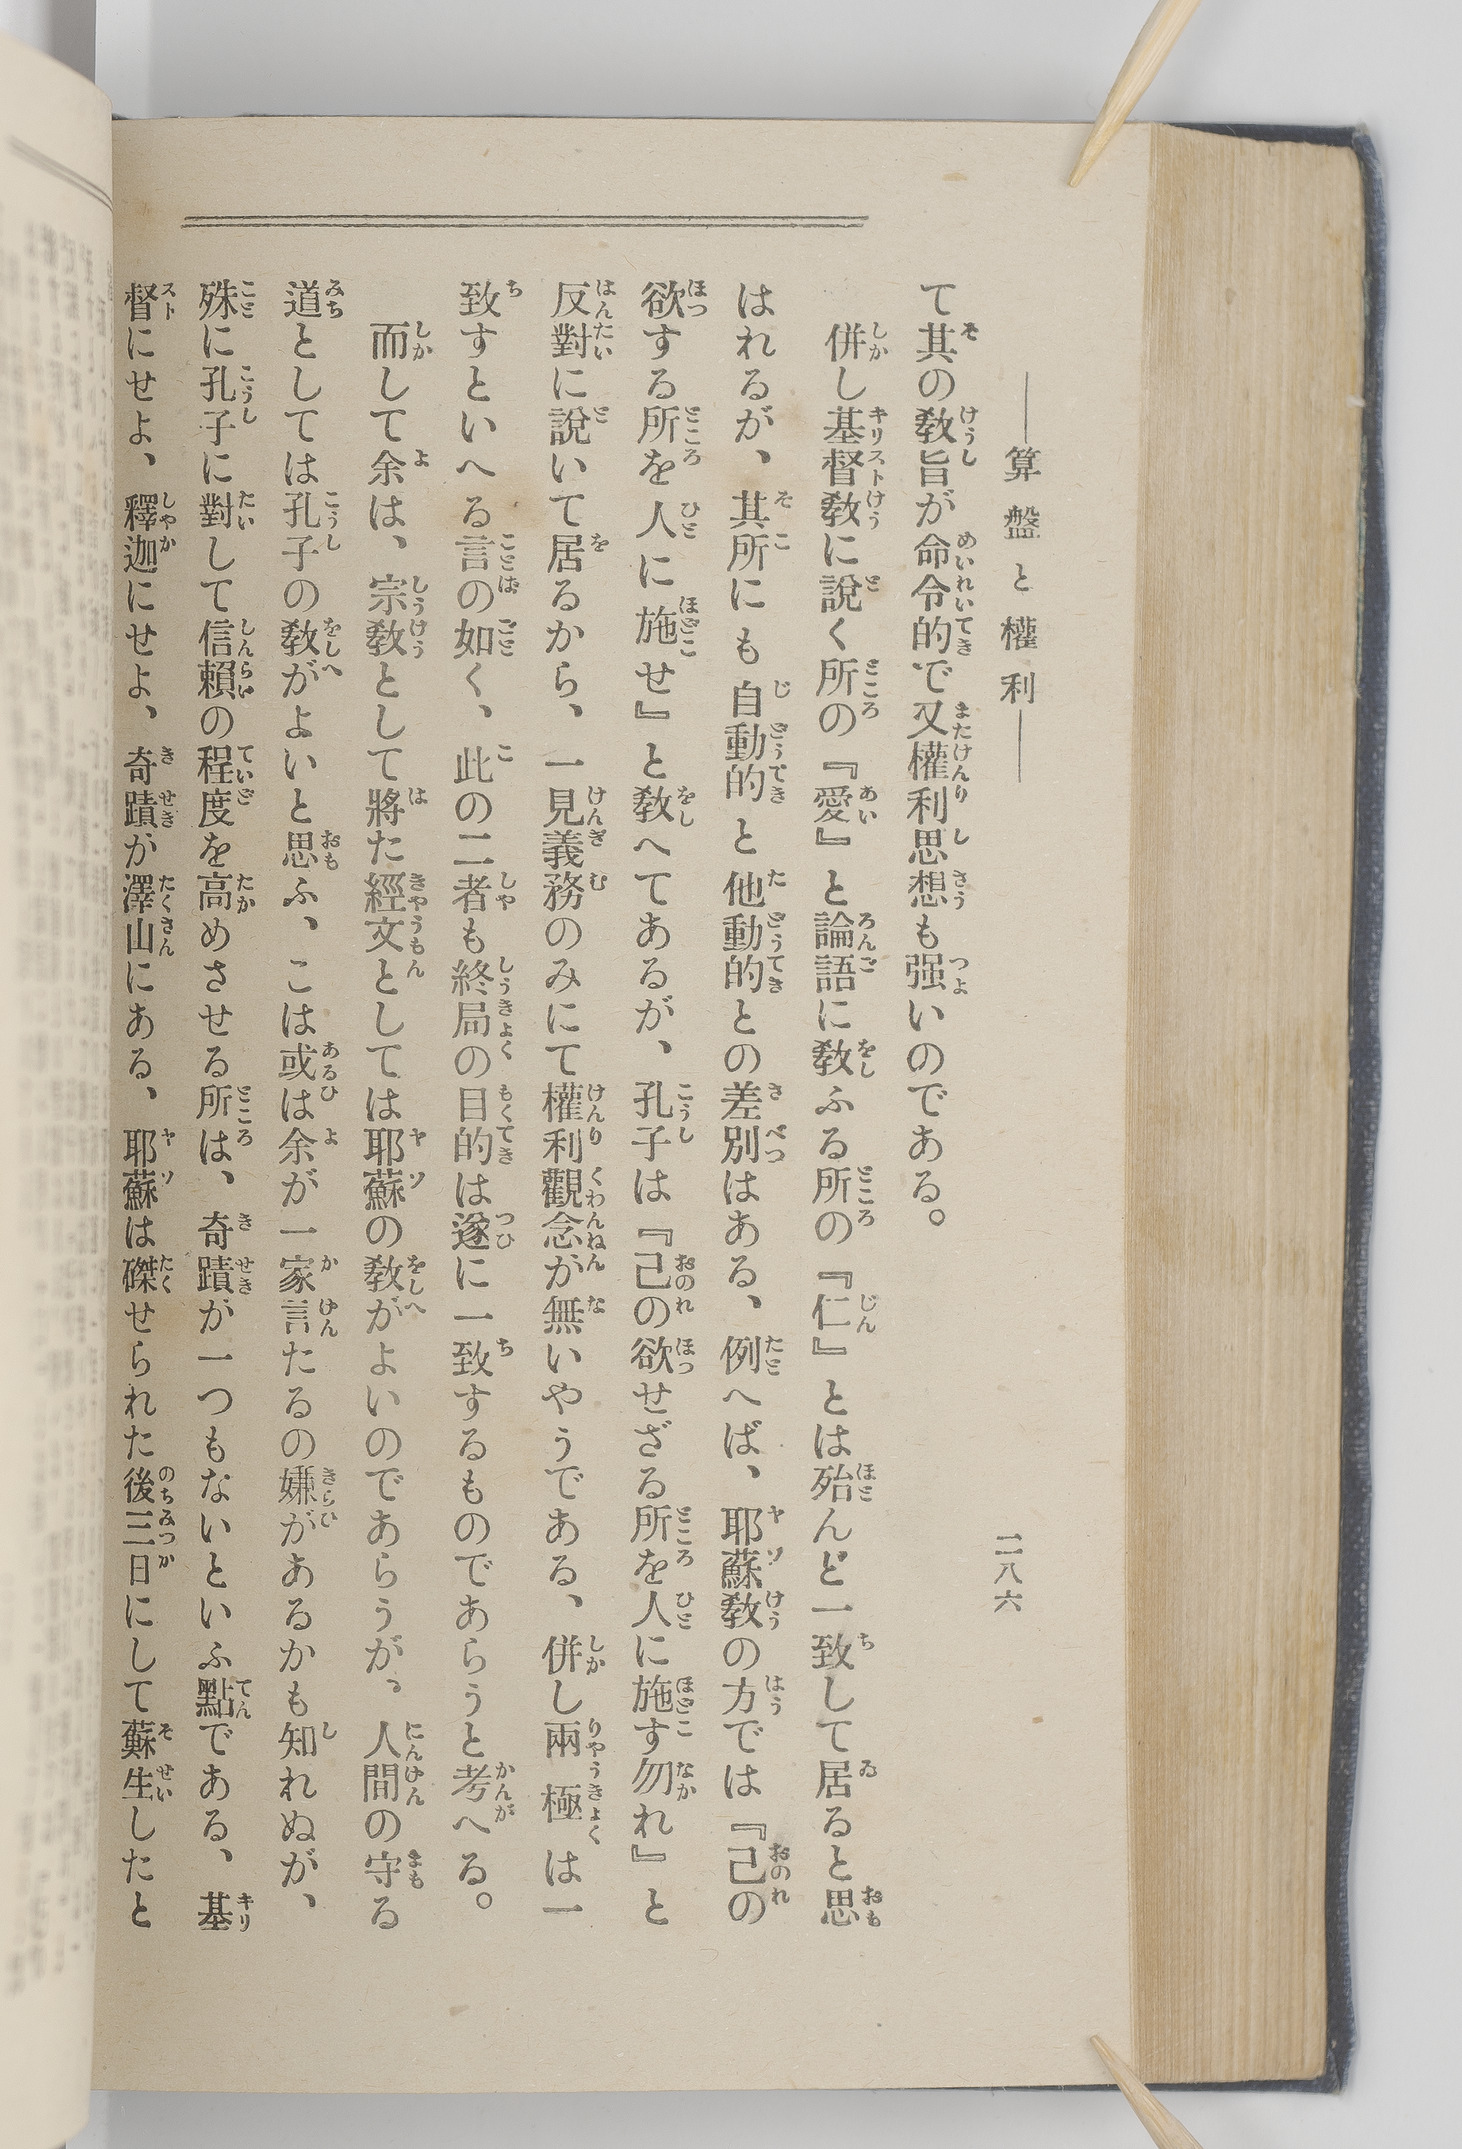 ――算盤と權利――
二八六
て其の敎旨が命令的で又權利思想も强いのである。
併し基督敎に說く所の『愛』と論語に敎ふる所の『仁』とは殆んど一致して居ると思
はれるが、其所にも自動的と他動的との差別はある、例へば、耶蘇敎の方では『己の
欲する所を人に施せ』と敎へてあるが、孔子は『己の欲せざる所を人に施す勿れ』と
反對に說いて居るから、一見義務のみにて權利觀念が無いやうである、併し兩極は一
致すといへる言の如く、此の二者も終局の目的は遂に一致するものであらうと考へる。
而して余は、宗敎として將た經文としては耶蘇の敎がよいのであらうが、人間の守る
道としては孔子の敎がよいと思ふ、こは或は余が一家言たるの嫌があるかも知れぬが、
殊に孔子に對して信賴の程度を高めさせる所は、奇蹟が一つもないといふ點である、基
督にせよ、釋迦にせよ、奇蹟が澤山にある、耶蘇は磔せられた後三日にして蘇生したと